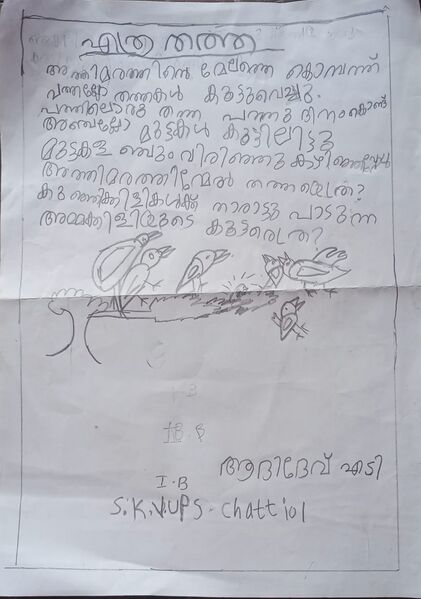 എത്ര തത്ത
അത്തിമരത്തിൻ മേലത്തെ കൊമ്പത്ത്
പത്തല്ലോ തത്തകൾ കൂട്ടുവെച്ചു.
പത്തിലൊരു തത്ത പത്തു ദിനംകൊണ്ട്
അഞ്ചല്ലോ മുട്ടകൾ കൂട്ടിലിട്ടു
മുട്ടകളഞ്ചും വിരിഞ്ഞു കഴിഞ്ഞപ്പോൾ
അത്തിമരത്തിന്മേൽ തത്തയെത്ര?
കുഞ്ഞിക്കിളികൾക്ക് താരാട്ടു പാടുന്ന
അമ്മക്കിളിയുടെ കൂട്ടരെത്ര?
I B
ആദിദേവ് എടി
I.B
S.K.V.UPS. chattiol